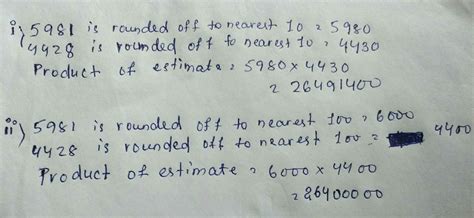 i) 5981 is rounded off to nearest 10 = 5980
4428 is rounded off to nearest 10 = 4430
Product of estimate = 5980 x 4430
= 26491400
ii) 5981 is rounded off to nearest 100 = 6000
4428 is rounded off to nearest 100 = 4400
Product of estimate = 6000 x 4400
= 26400000